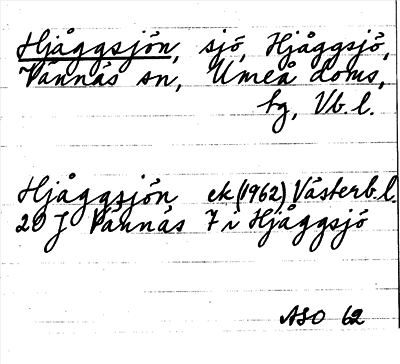 Hjåggsjön, sjö, Hjåggsjö,
Vännäs sn, Umeå doms,
hg, Vb.l.
Hjåggsjön ek (1962) Västerb.l.
20 J Vännäs 7 i Hjåggsjö
ASO 62